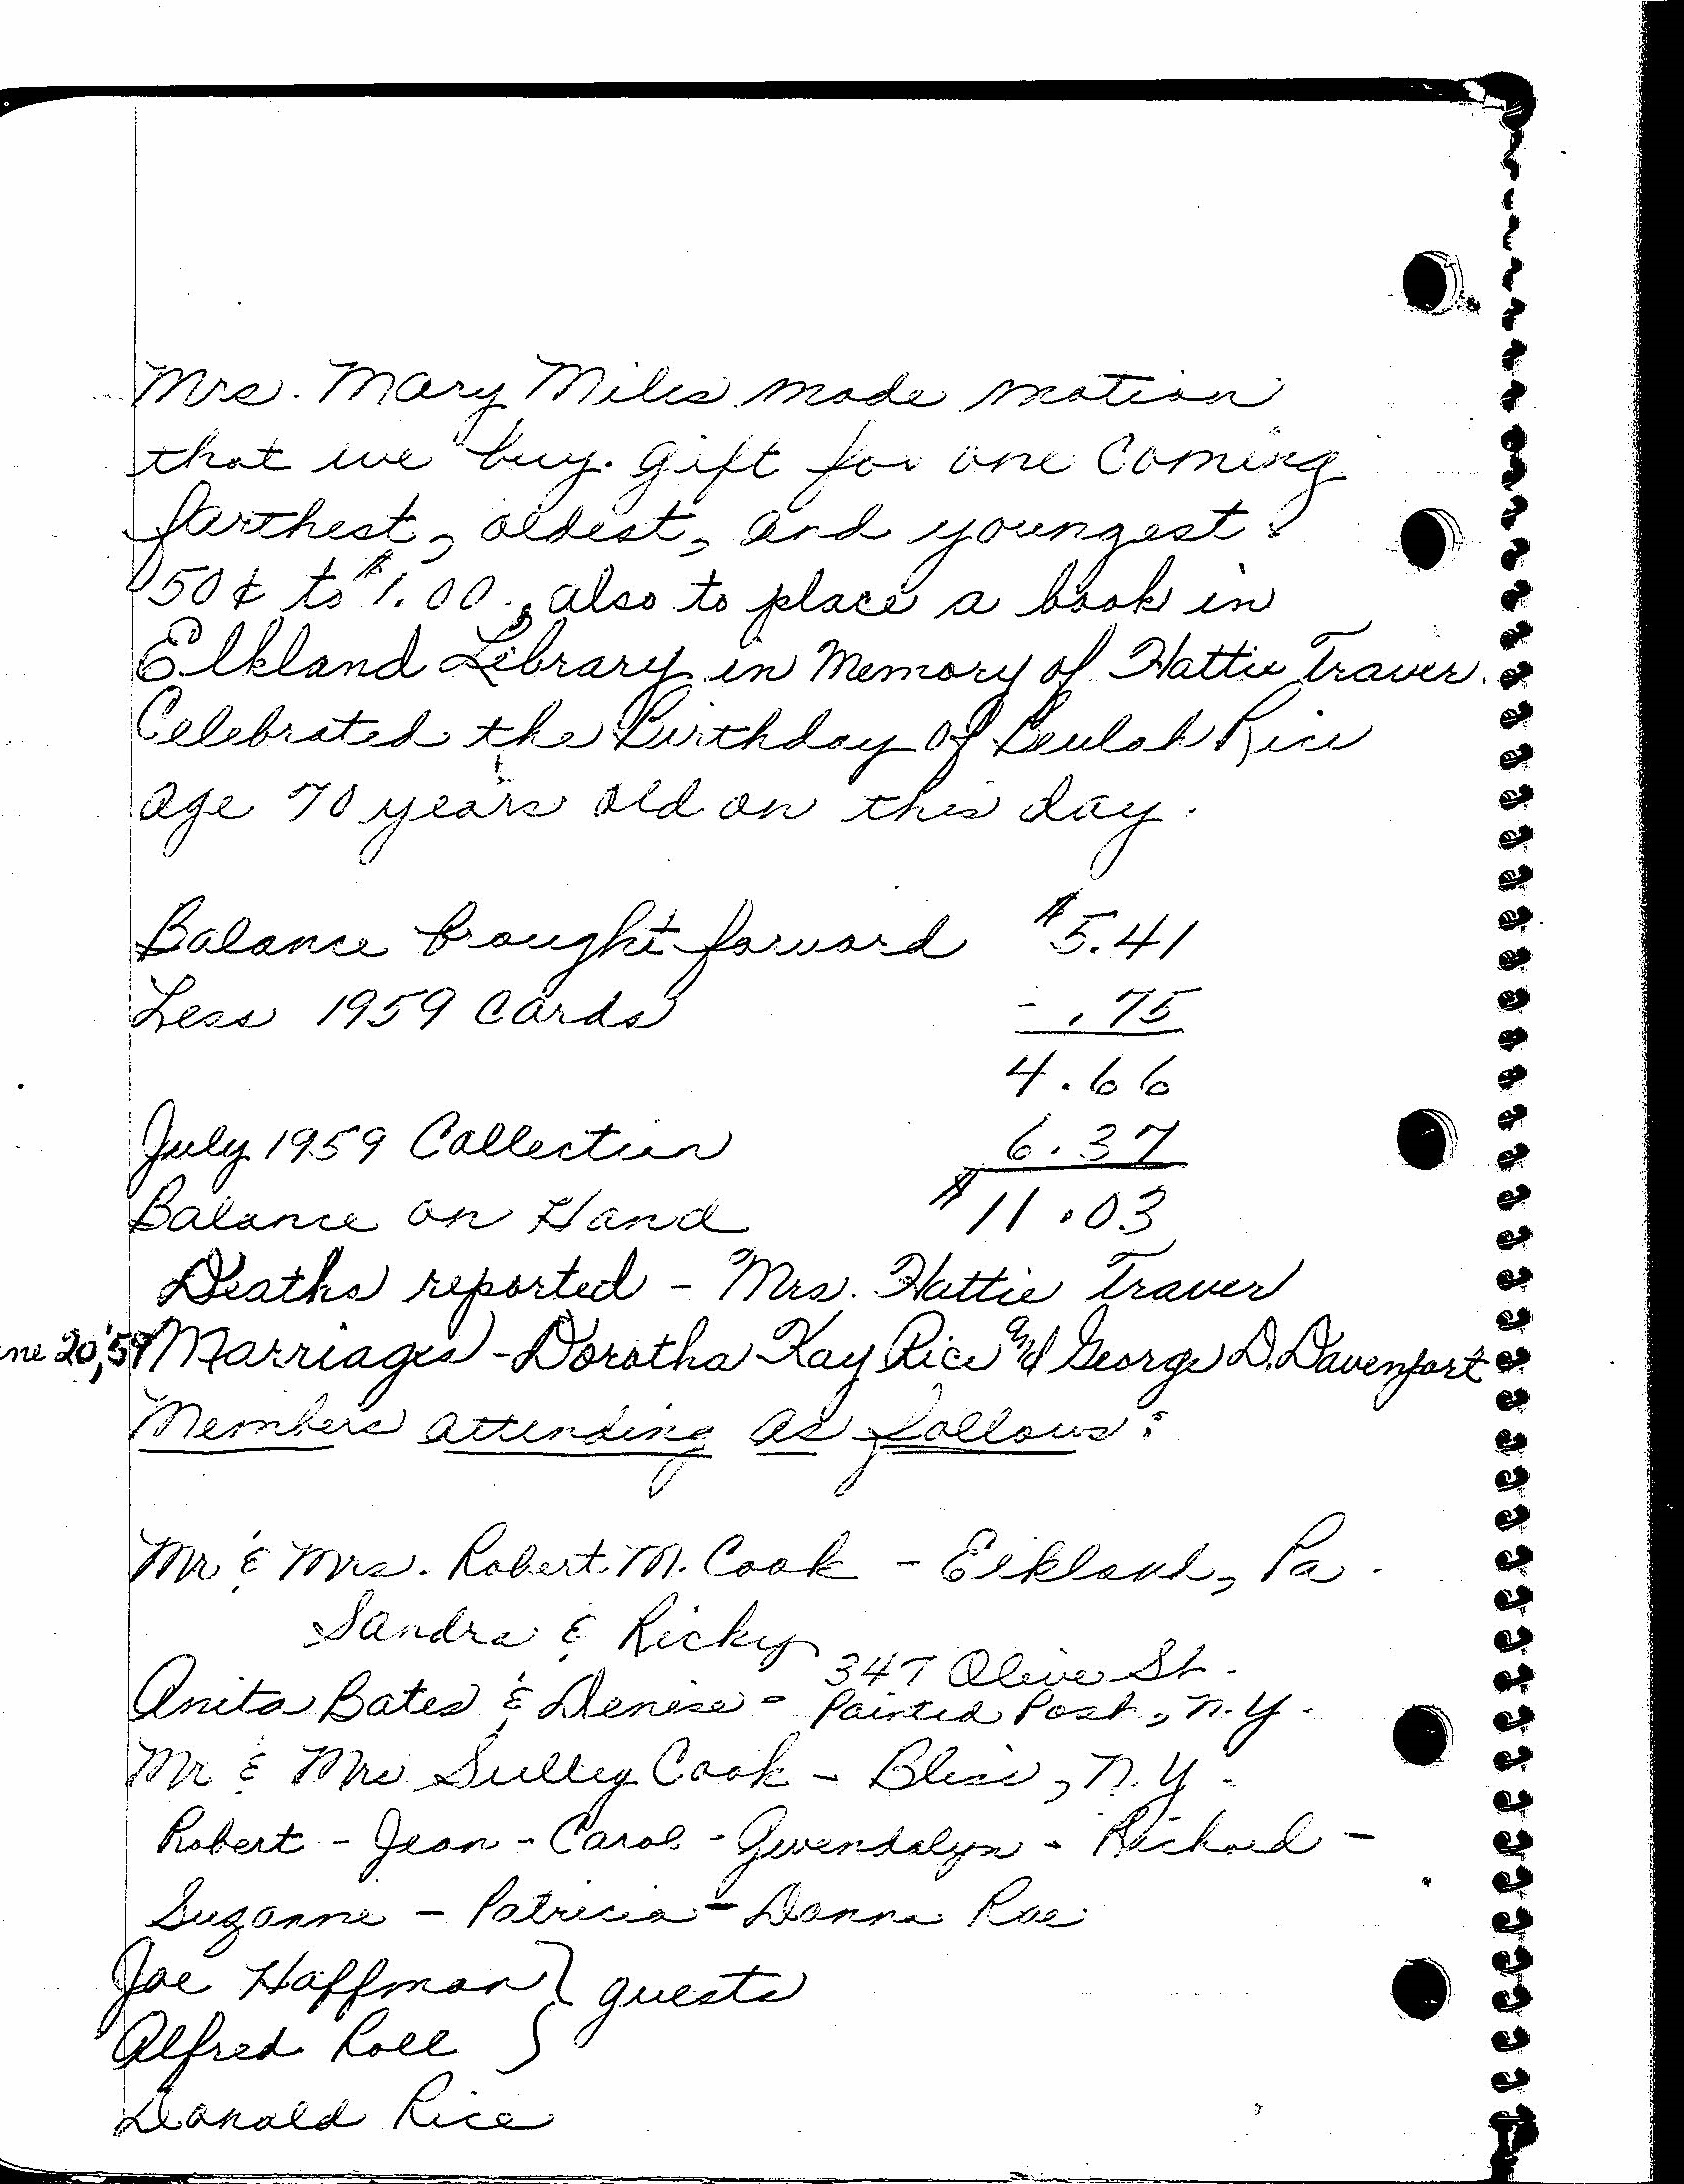 Mrs. Mary Miles made motion
that we buy gift for one Coming
farthest, oldest, and youngest
50¢ to $1.00, also to place a book in
Elkland Library in Memory of Hattie Traver.
Celebrated the Birthday of Beulah Rice
age 70 years old on this day.
Balance brought forward $5.41
Less 1959 Cards - .75
4.66
July 1959 Collection 6.37
Balance on Hand $11.03
Deaths reported - Mrs. Hattie Traver
ne 20, '59 Marriages - Dorotha Kay Rice and George D. Davenport
Members attending as follows:
Mr & Mrs. Robert M. Cook - Elkland, Pa.
Sandra & Ricky
347 Olive St.
Anita Bates & Denise - Painted Post, N.Y.
Mr & Mrs Sulley Cook - Bliss, N.Y.
Robert - Jean - Carol - Gwendolyn - Richard -
Suzanne - Patricia - Donna Rae
Joe Hoffman } guests
Alfred Roll }
Donald Rice